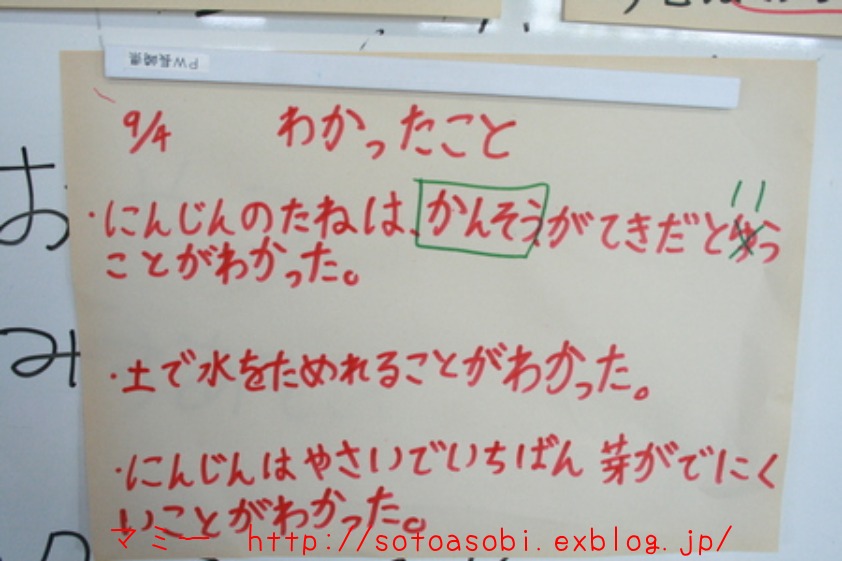 PW長崎県
9/4 わかったこと
・にんじんのたねは、かんそうがてきだという
ことがわかった。
・土で水をためれることがわかった。
・にんじんはやさいでいちばん芽がでにく
いことがわかった。
マミー http://sotoasobi.exblog.jp/
お
み